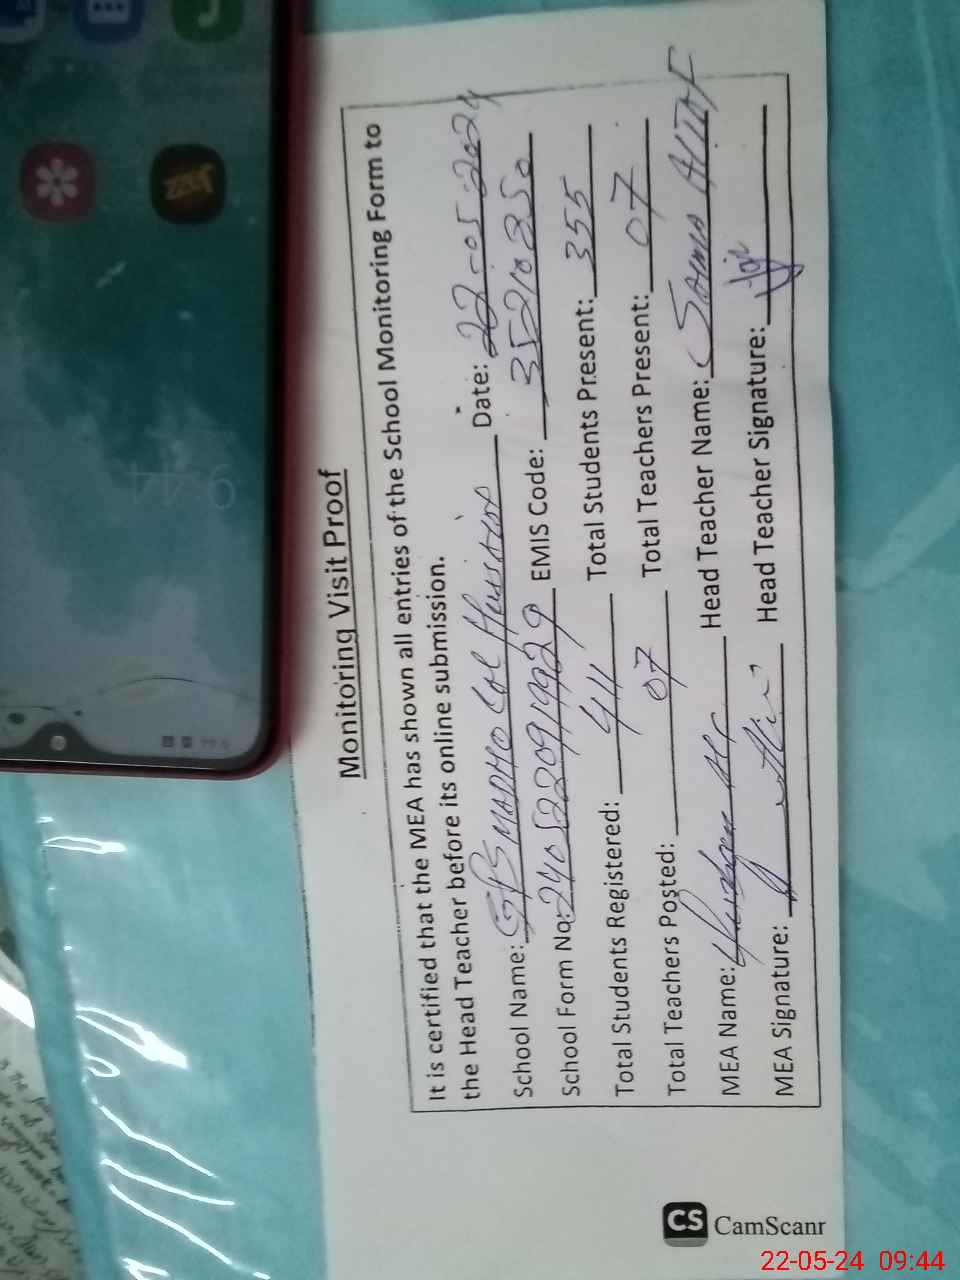 Monitoring Visit Proof
It is certified that the MEA has shown all entries of the School Monitoring Form to
the Head Teacher before its online submission.
School Name: GPS MADHO LAL HUSSAIN Date: 22-05-2024
School Form No: EMIS Code: 35210350
Total Students Registered: 411 Total Students Present: 355
Total Teachers Posted: 07 Total Teachers Present: 07
MEA Name: Head Teacher Name: Saima ALTAF
MEA Signature: Head Teacher Signature:
CS CamScanr
22-05-24 09:44
Jazz
9:44